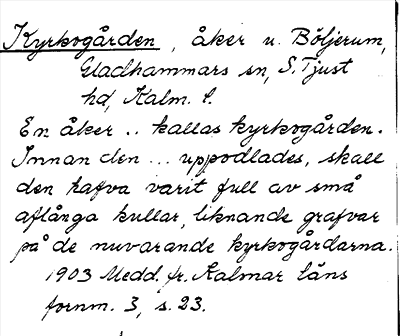 Kyrkogården, åker u. Böljerum,
Gladhammars sn, S. Tjust
hd, Kalm. l.
En åker .. kallas kyrkogården.
Innan den ... uppodlades, skall
den hafva varit full av små
aflånga kullar, liknande grafvar
på de nuvarande kyrkogårdarna.
1903 Medd. fr. Kalmar läns
fornm. 3, s. 23.